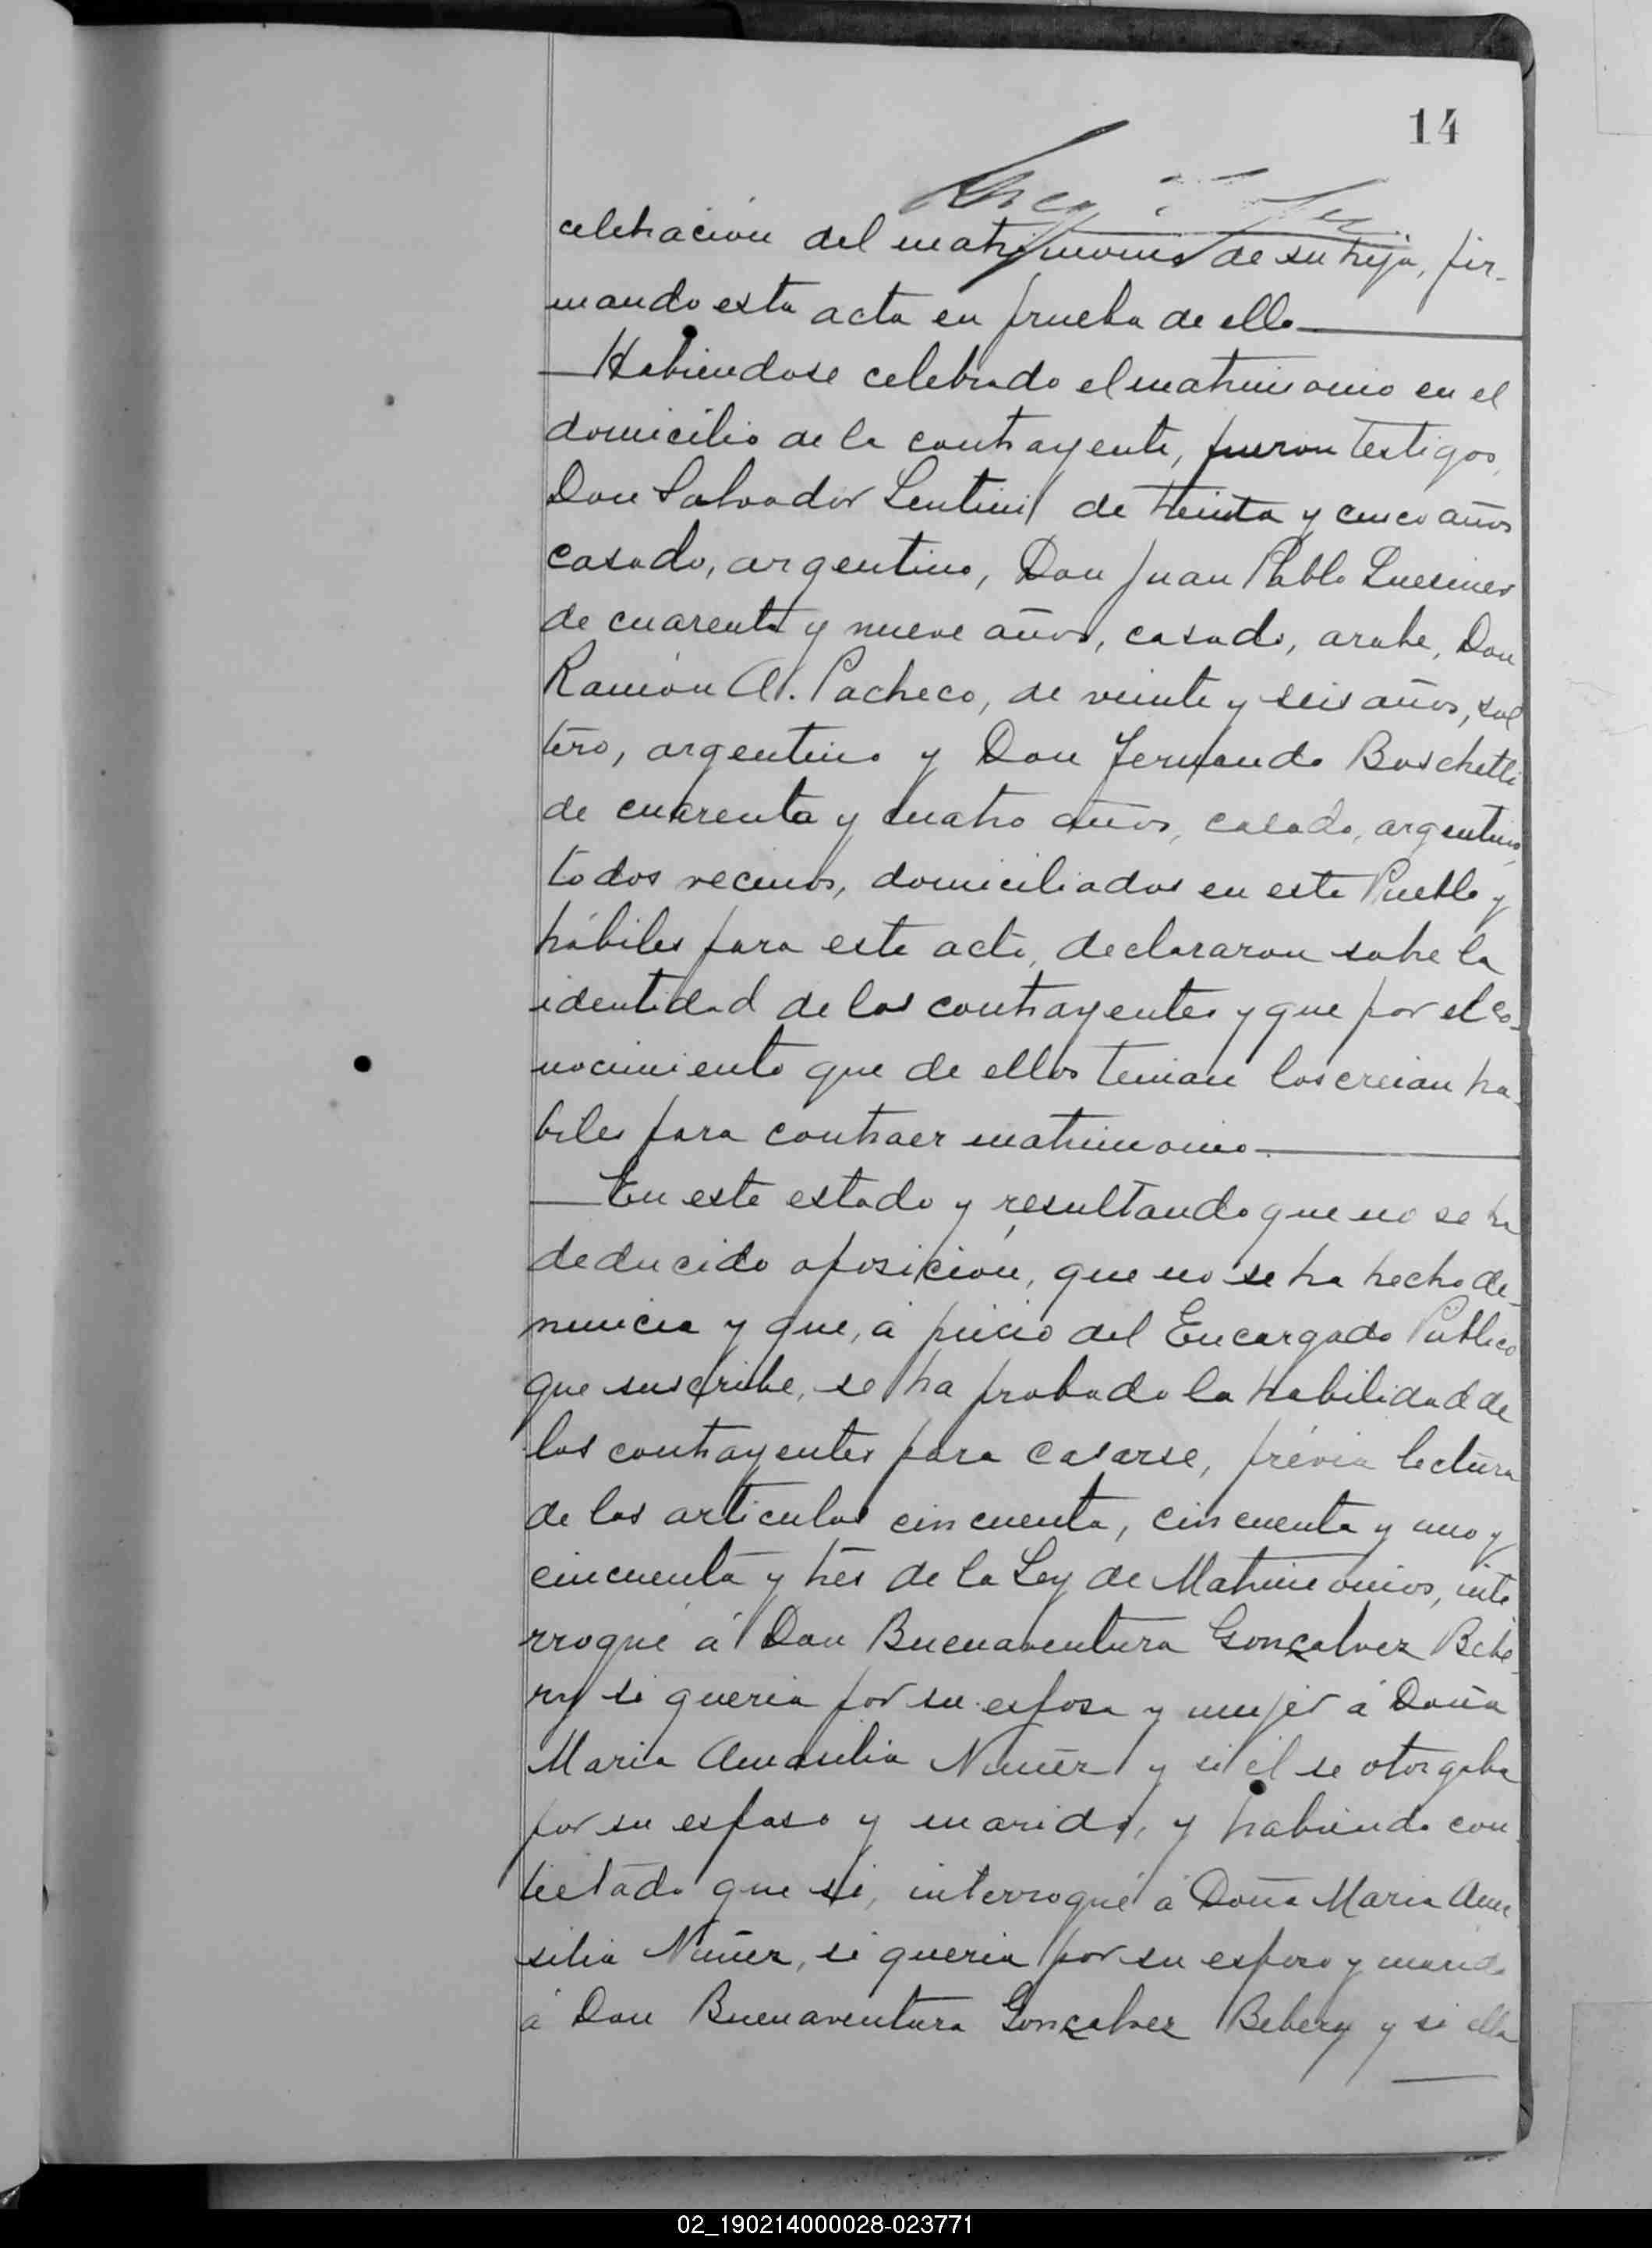 14
celebración del matrimonio de su hija, fir-
mando esta acta en prueba de ello
Habiendose celebrado el matrimonio en el
domicilio de la contrayente, fueron testigos,
Don Salvador Lentini de treinta y cinco años
casado, argentino, Don Juan Pablo
de cuarenta y nueve años, casado, arabe, Don
Ramón A. Pacheco, de veinte y seis años, sol
tero, argentino y Don Fernando Boschetti
de cuarenta y cuatro años, casado, argentino,
todos vecinos, domiciliados en este Pueblo y
hábiles para este acto, declararon sobre la
identidad de los contrayentes y que por el co-
nocimiento que de ellos tenian los creian ha-
biles para contraer matrimonio.
En este estado y resultando que no se ha
deducido oposición, que no se ha hecho de-
nuncia y que, á juicio del Encargado Publico
que suscribe, se ha probado la habilidad de
los contrayentes para casarse, prévia lectura
de los articulos cincuenta, cincuenta y uno y
cincuenta y tres de la Ley de Matrimonios, inte
rrogué á Don Buenaventura Gonçalvez Bebe-
ry si queria por su esposa y mujer á Doña
Maria Amasilia Nuñez y si él se otorgaba
por su esposo y marido, y habiendo con
testado que si, interrogué á Doña Maria Ama
silia Nuñez, si queria por su esposo y marido
á Don Buenaventura Gonçalvez Bebery y si ella
02_190214000028-023771